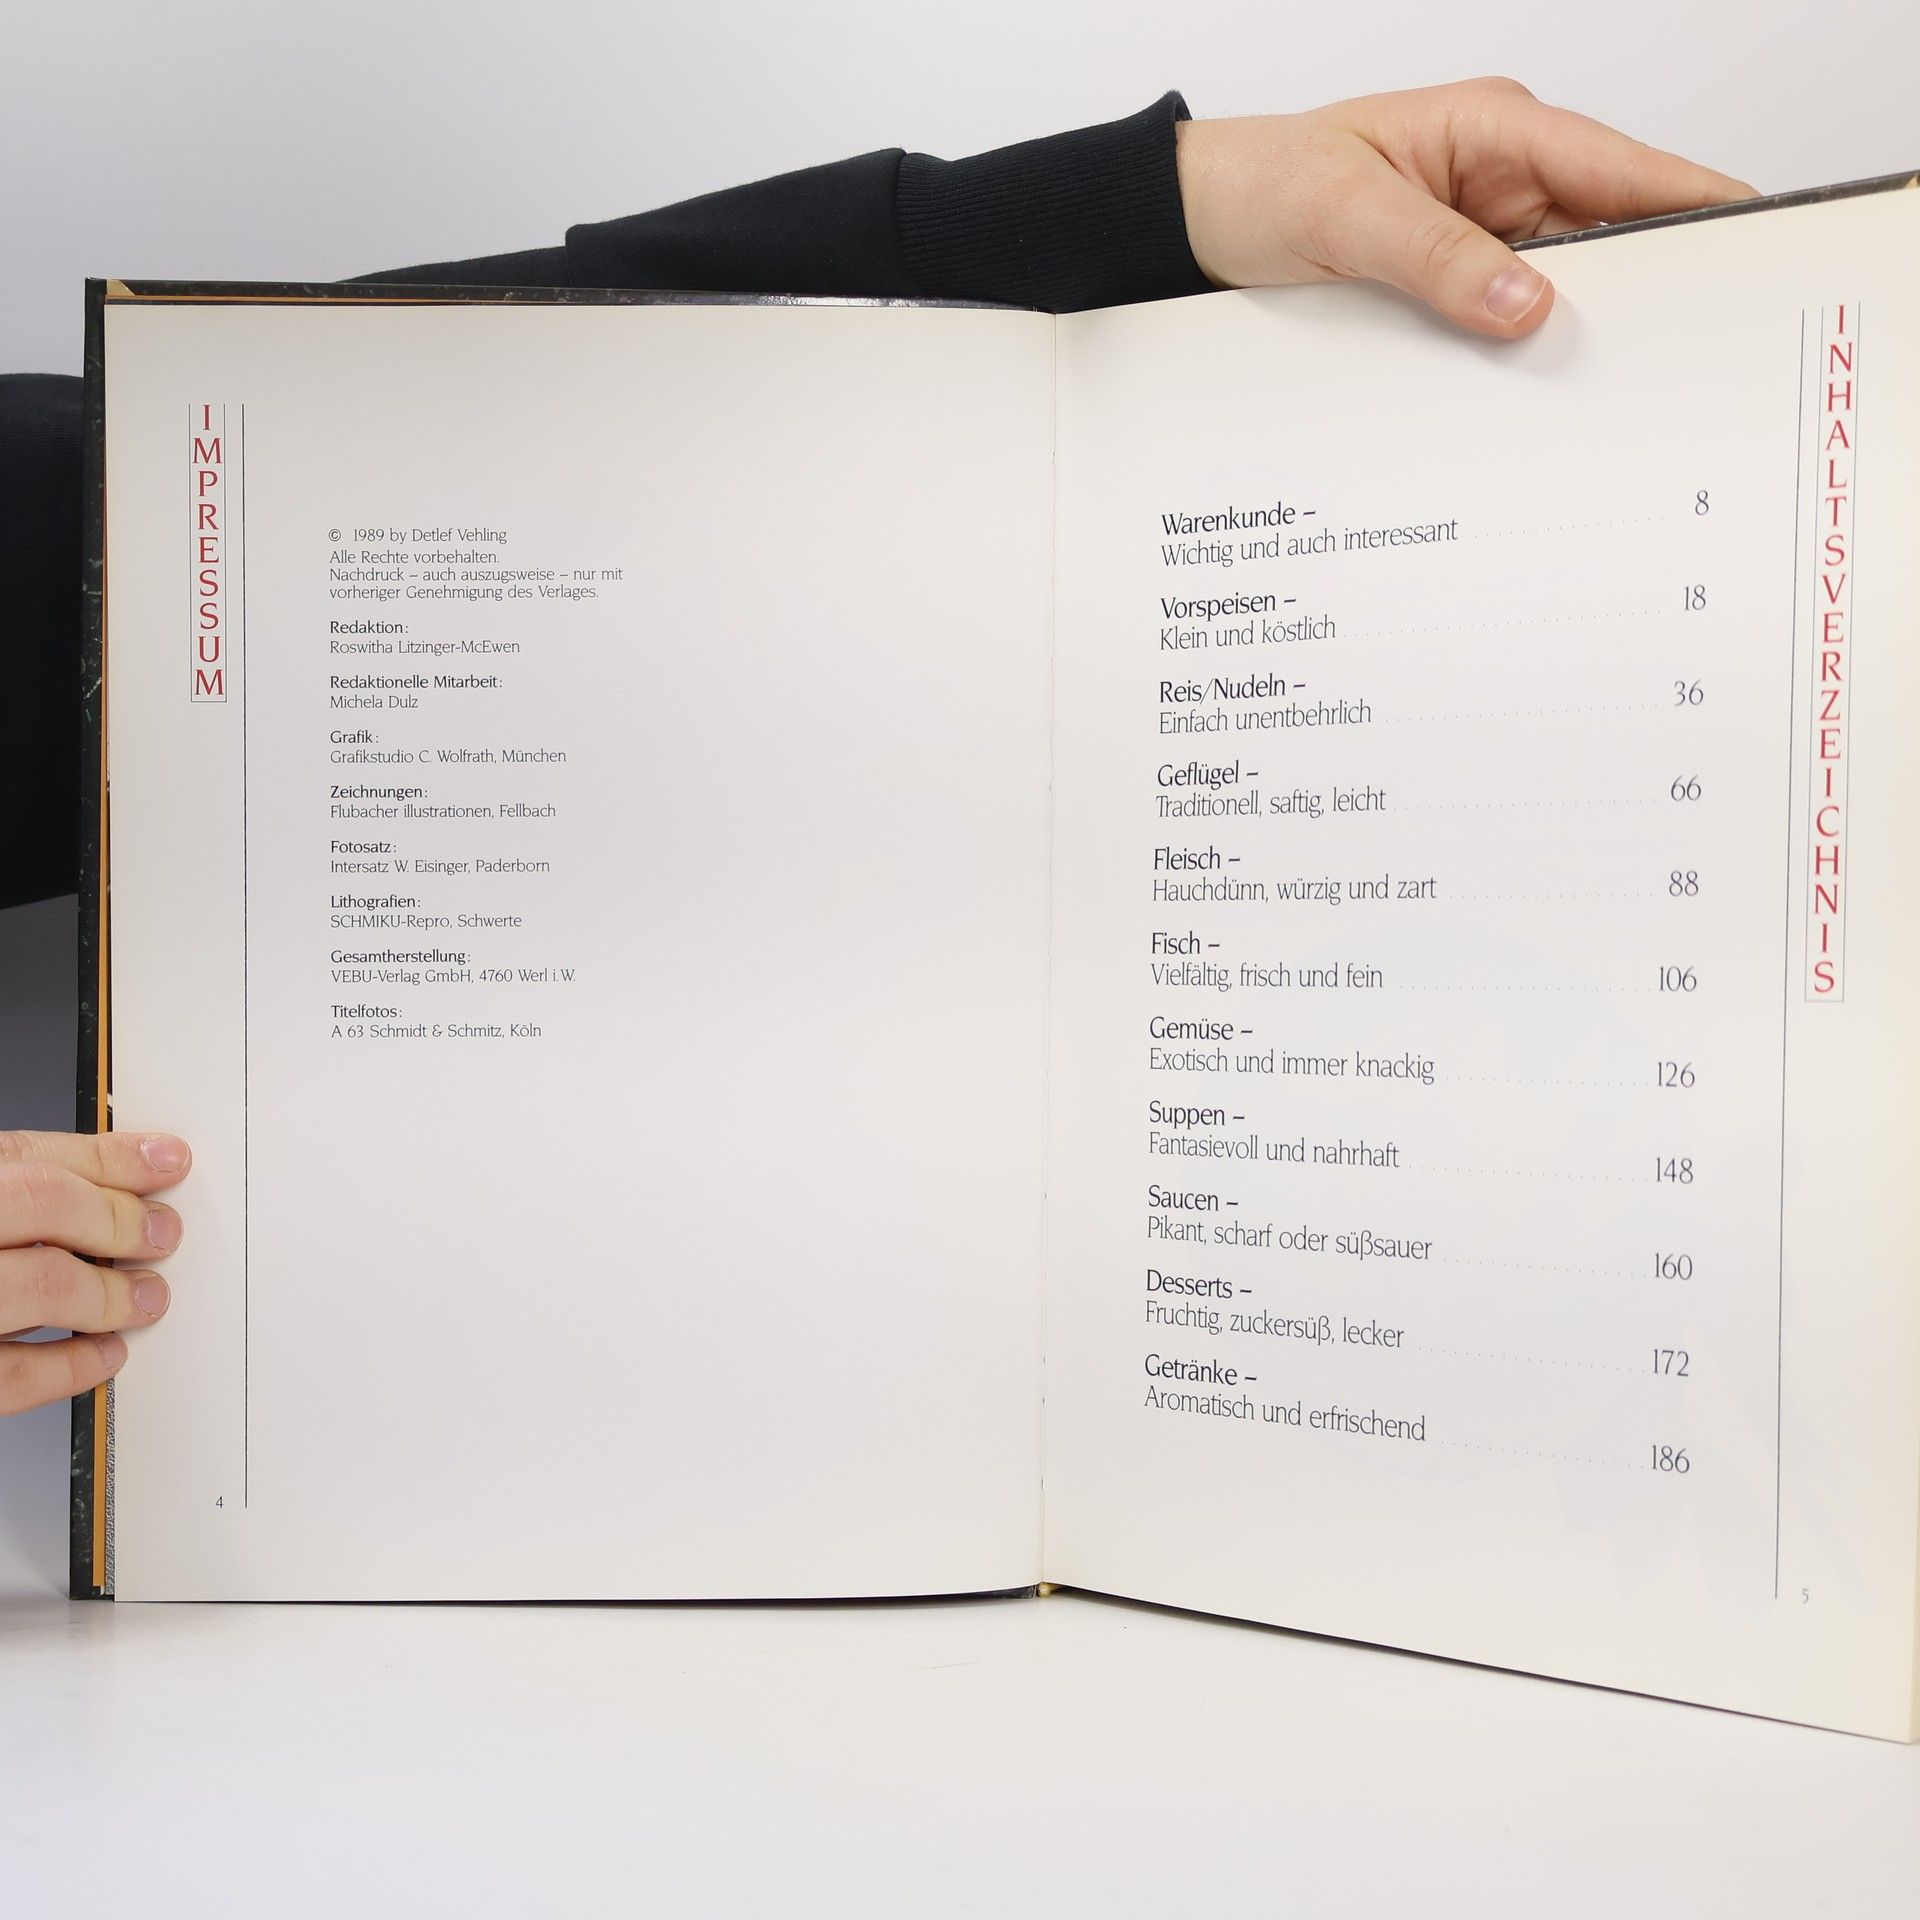 IMPRESSUM
© 1989 by Detlef Vehling
Alle Rechte vorbehalten.
Nachdruck – auch auszugsweise – nur mit
vorheriger Genehmigung des Verlages.
Redaktion:
Roswitha Litzinger-McEwen
Redaktionelle Mitarbeit:
Michela Dulz
Grafik:
Grafikstudio C. Wolfrath, München
Zeichnungen:
Flubacher illustrationen, Fellbach
Fotosatz:
Intersatz W. Eisinger, Paderborn
Lithografien:
SCHMIKU-Repro, Schwerte
Gesamtherstellung:
VEBU-Verlag GmbH, 4760 Werl i. W.
Titelfotos:
A 63 Schmidt & Schmitz, Köln
4
INHALTSVERZEICHNIS
Warenkunde –
Wichtig und auch interessant 8
Vorspeisen –
Klein und köstlich 18
Reis/Nudeln –
Einfach unentbehrlich 36
Geflügel –
Traditionell, saftig, leicht 66
Fleisch –
Hauchdünn, würzig und zart 88
Fisch –
Vielfältig, frisch und fein 106
Gemüse –
Exotisch und immer knackig 126
Suppen –
Fantasievoll und nahrhaft 148
Saucen –
Pikant, scharf oder süßsauer 160
Desserts –
Fruchtig, zuckersüß, lecker 172
Getränke –
Aromatisch und erfrischend 186
5